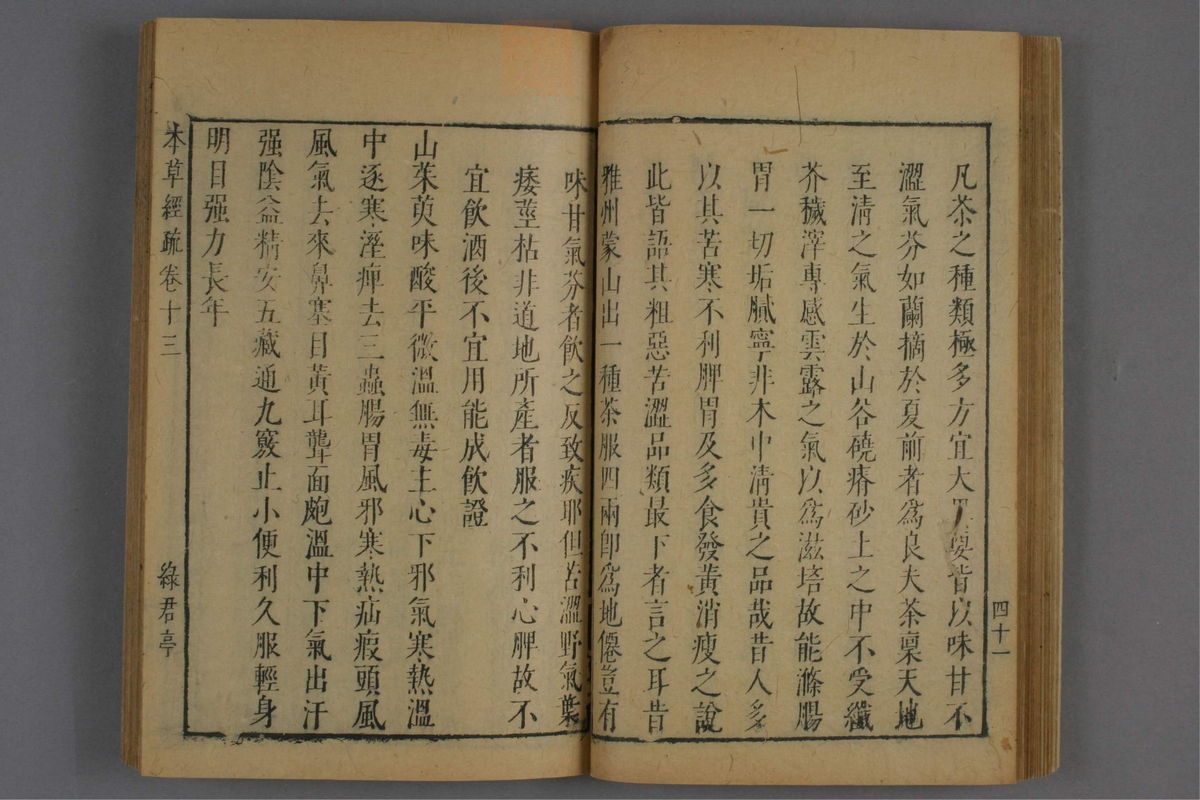 四十一
凡茶之種類極多方宜大要皆以味甘不
澀氣芬如蘭摘於夏前者爲良夫茶稟天地
至清之氣生於山谷磽瘠砂土之中不受纖
芥穢滓專感雲露之氣以爲滋培故能滌腸
胃一切垢膩寧非木中清貴之品哉昔人多
以其苦寒不利脾胃及多食發黃消瘦之說
此皆語其粗惡苦澀品類最下者言之耳昔
雅州蒙山出一種茶服四兩卽爲地僊豈有
味甘氣芬者飲之反致疾耶但苦澀野氣葉
痿莖枯非道地所產者服之不利心脾故不
宜飲酒後不宜用能成飲證
山茱萸味酸平微溫無毒主心下邪氣寒熱溫
中逐寒溼痺去三蟲腸胃風邪寒熱疝瘕頭風
風氣去來鼻塞目黃耳聾面皰溫中下氣出汗
强陰益精安五藏通九竅止小便利久服輕身
明目强力長年
本草經疏卷十三
綠君亭